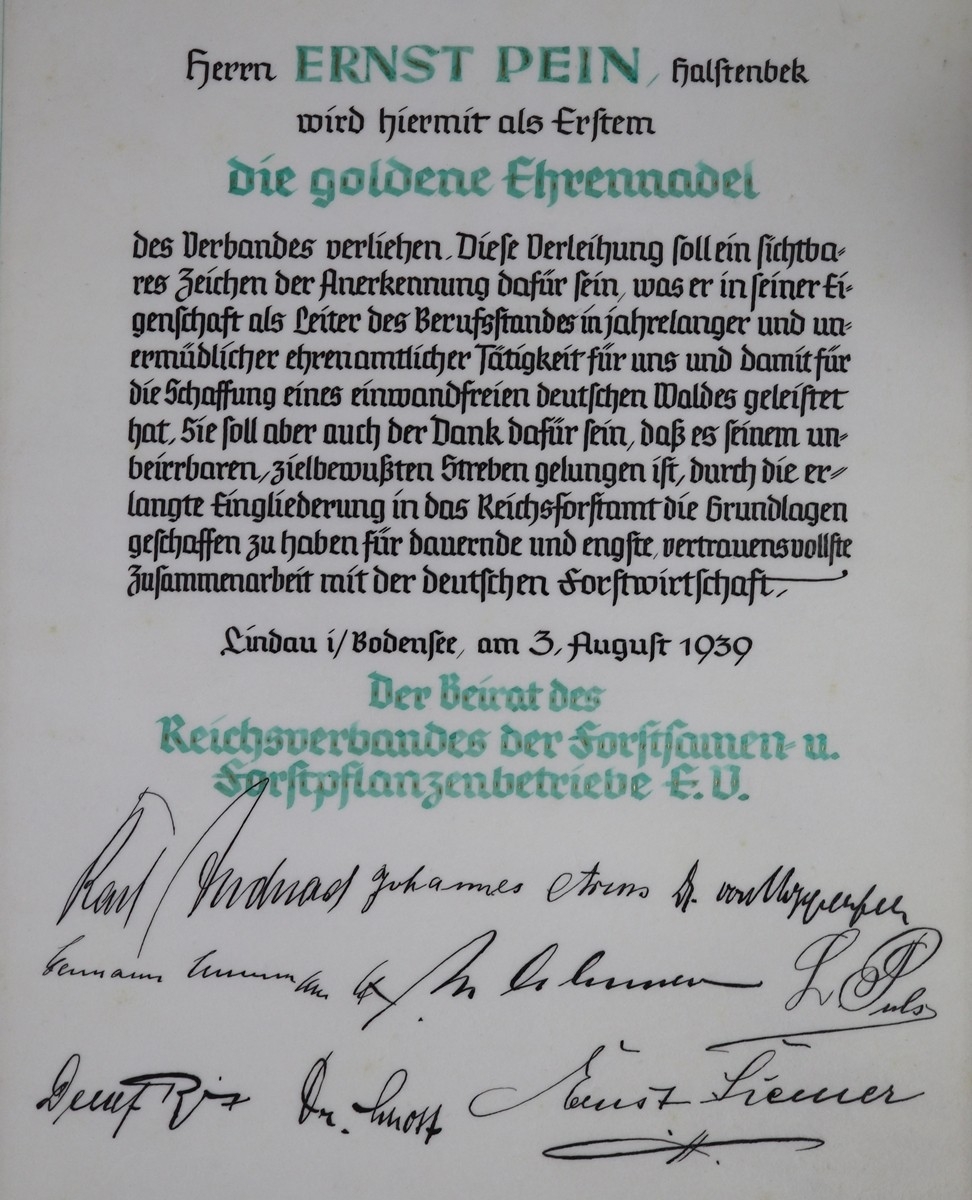 Herrn ERNST PEIN, Halstenbek
wird hiermit als Erstem
die goldene Ehrennadel
des Verbandes verliehen. Diese Verleihung soll ein sichtba-
res Zeichen der Anerkennung dafür sein, was er in seiner Ei-
genschaft als Leiter des Berufsstandes in jahrelanger und un-
ermüdlicher ehrenamtlicher Tätigkeit für uns und damit für
die Schaffung eines einwandfreien deutschen Waldes geleistet
hat. Sie soll aber auch der Dank dafür sein, daß es seinem un-
beirrbaren, zielbewußten Streben gelungen ist, durch die er-
langte Eingliederung in das Reichsforstamt die Grundlagen
geschaffen zu haben für dauernde und engste, vertrauensvollste
Zusammenarbeit mit der deutschen Forstwirtschaft.
Lindau i/Bodensee, am 3. August 1939
Der Beirat des
Reichsverbandes der Forstsamen- u.
Forstpflanzenbetriebe E.V.
Karl Johannes Dr. von
L. Puls
Dr. Ernst